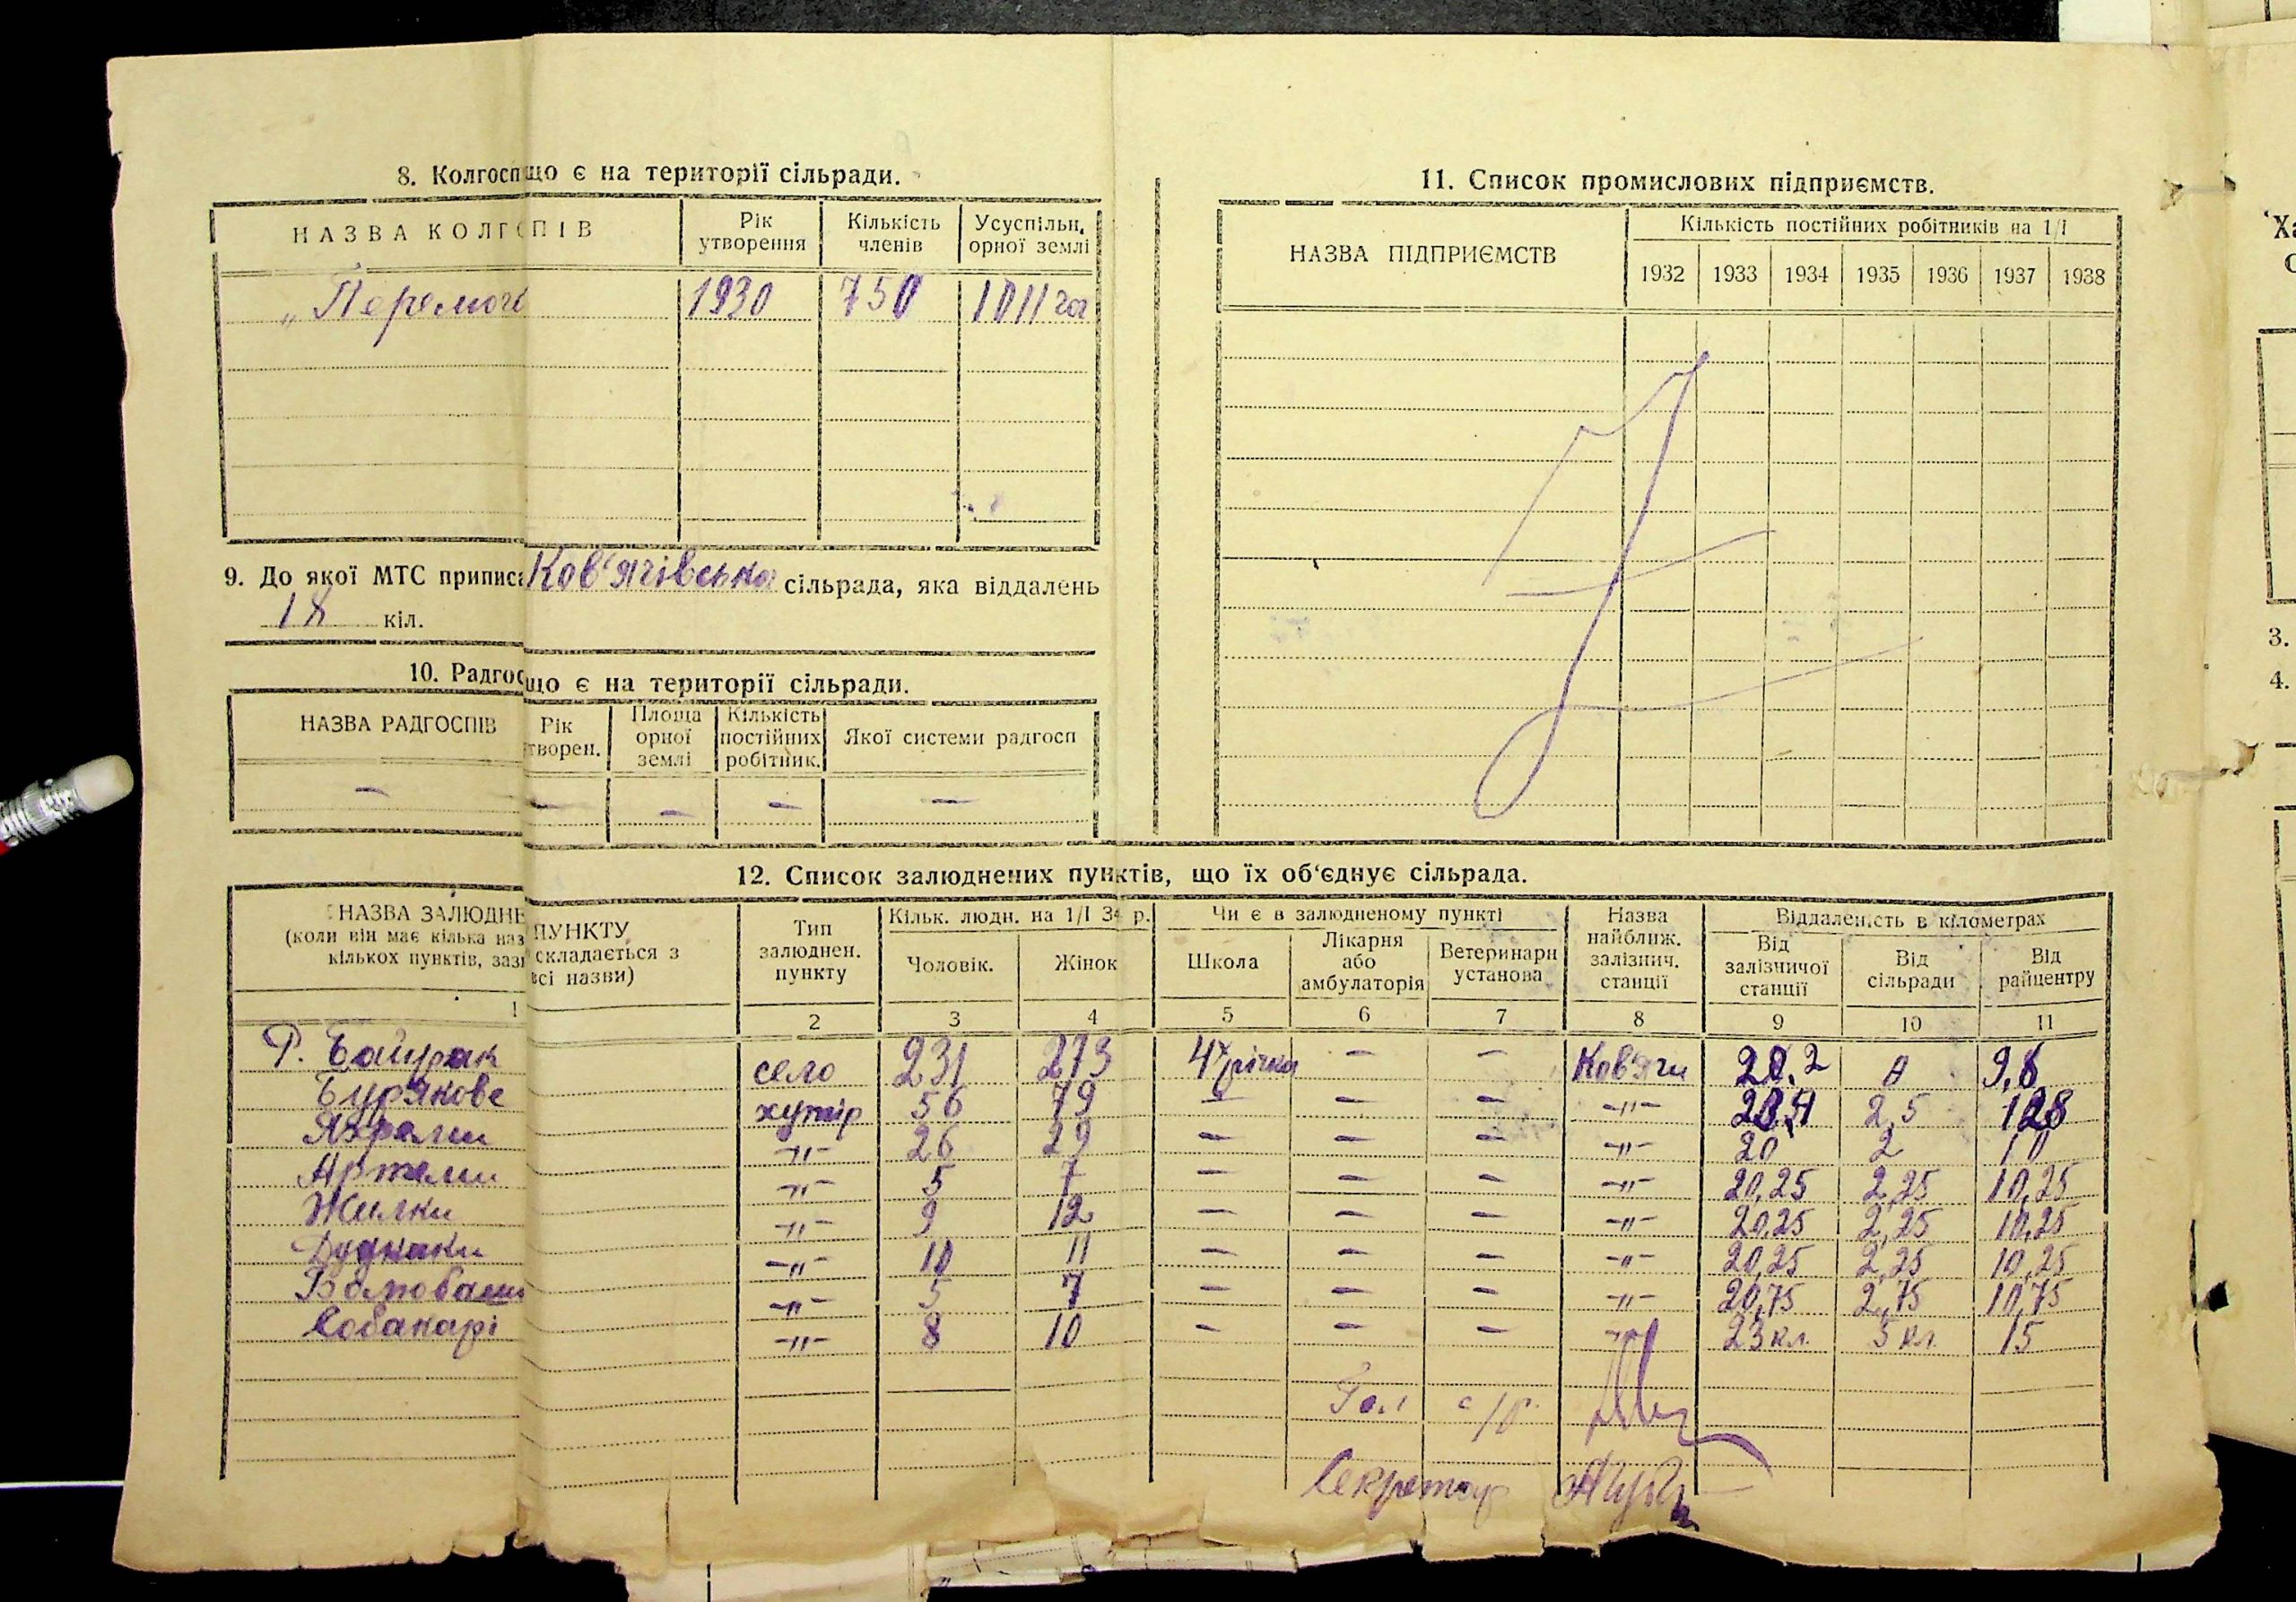 8. Колгосп що є на території сільради.
НАЗВА КОЛГ ПІВ
Рік утворення
Кількість членів
Усуспільн. орної землі
„Перемога 1930 750 1011 га
9. До якої МТС приписа Ков‘ягівська сільрада, яка віддалень
18 кіл.
10. Радгос що є на території сільради.
НАЗВА РАДГОСПІВ
Рік творен.
Площа орної землі
Кількість постійних робітник.
Якої системи радгосп
— — — — —
11. Список промислових підприємств.
НАЗВА ПІДПРИЄМСТВ
Кількість постійних робітників на 1/І
1932 1933 1934 1935 1936 1937 1938
12. Список залюднених пунктів, що їх об‘єднує сільрада.
НАЗВА ЗАЛЮДНЕ ПУНКТУ
(коли він має кілька наз складається з
кількох пунктів, зазн всі назви)
Тип залюднен. пункту
Кільк. людн. на 1/І 34 р.
Чоловік. Жінок
Чи є в залюдненому пункті
Школа
Лікарня або амбулаторія
Ветеринарн установа
Назва найближ. залізнич. станції
Віддаленість в кілометрах
Від залізничої станції
Від сільради
Від райцентру
1 2 3 4 5 6 7 8 9 10 11
Р. Байрак село 231 273 4х річка — — Ков‘яги 20,2 0 9,8
Бур‘якове хутір 56 79 — — — —"— 2,5 128
—"— 26 29 — — — —"— 20 2 10
Артели —"— 5 7 — — — —"— 20,25 2,25 10,25
Жилки —"— 9 12 — — — —"— 20,25 2,25 10,25
Дудники —"— 10 11 — — — —"— 20,25 2,25 10,25
—"— 5 7 — — — —"— 20,75 2,75 10,75
Собакарі —"— 8 10 — — — —"— 23 кл. 5 кл. 15
Гол с/р.
Секретар
3.
4.